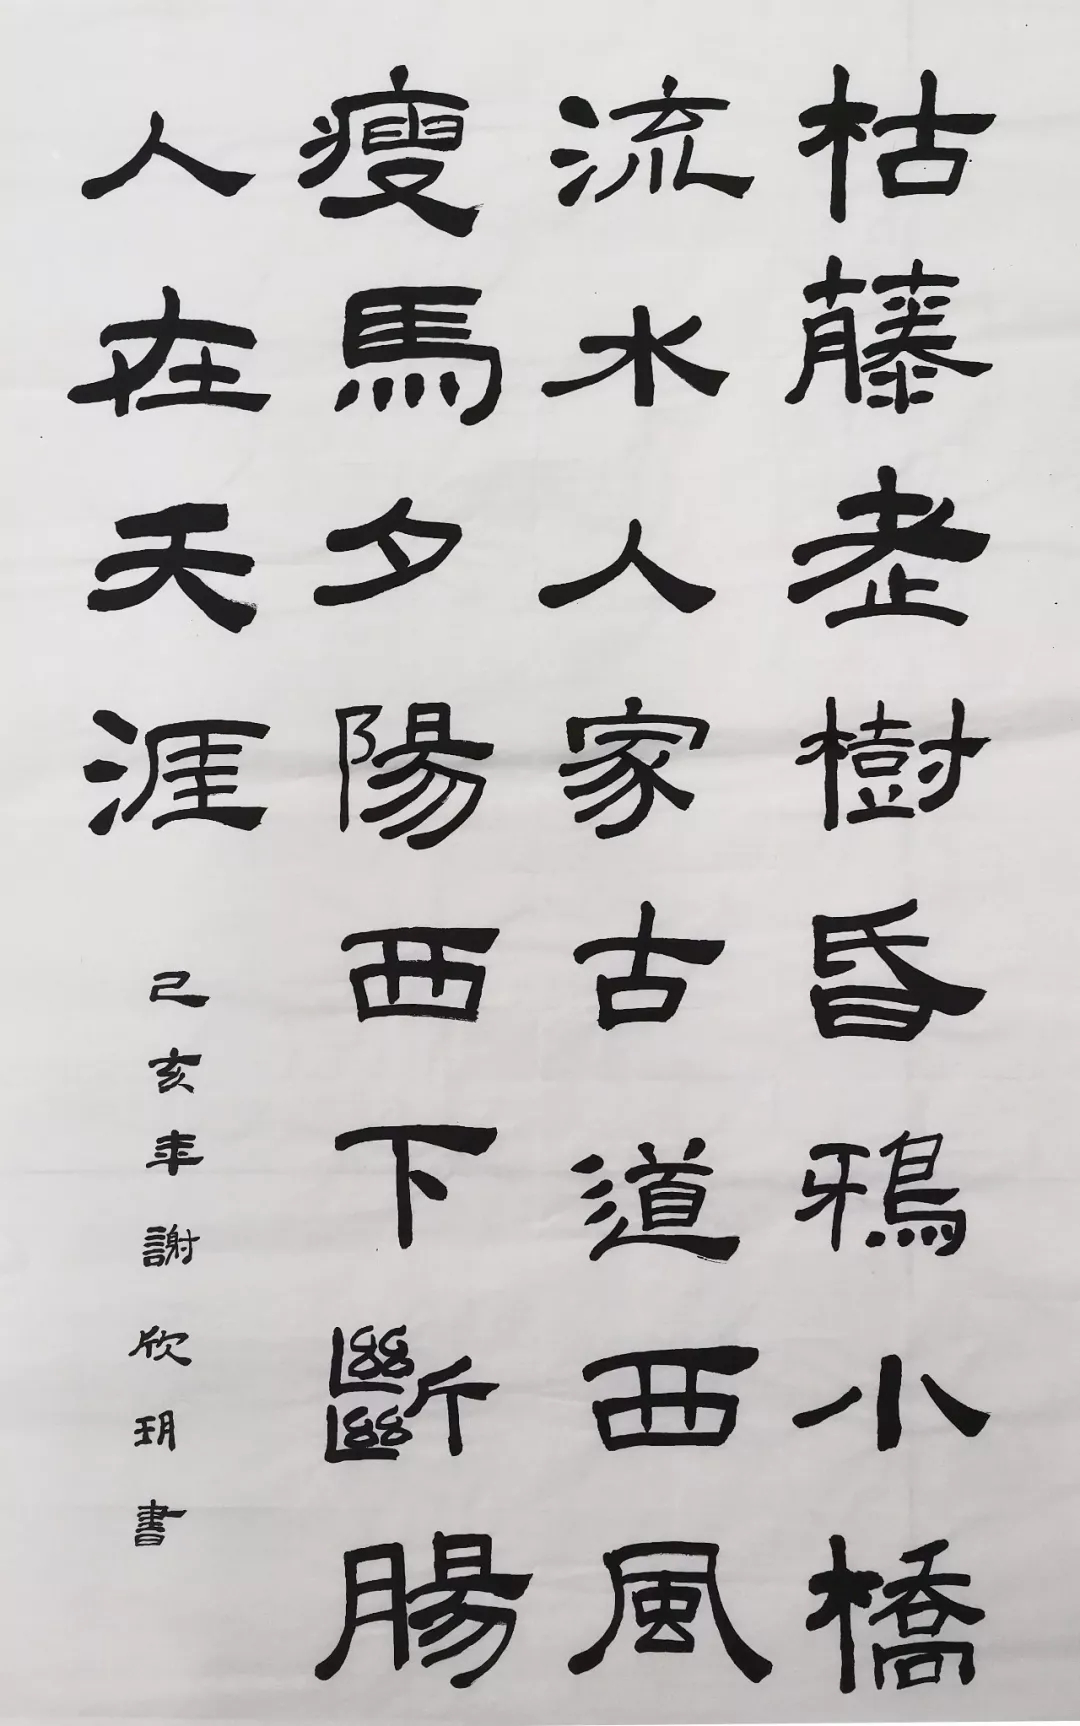 枯藤老樹昏鴉小橋
流水人家古道西風
瘦馬夕陽西下斷腸
人在天涯
己亥年謝欣玥書